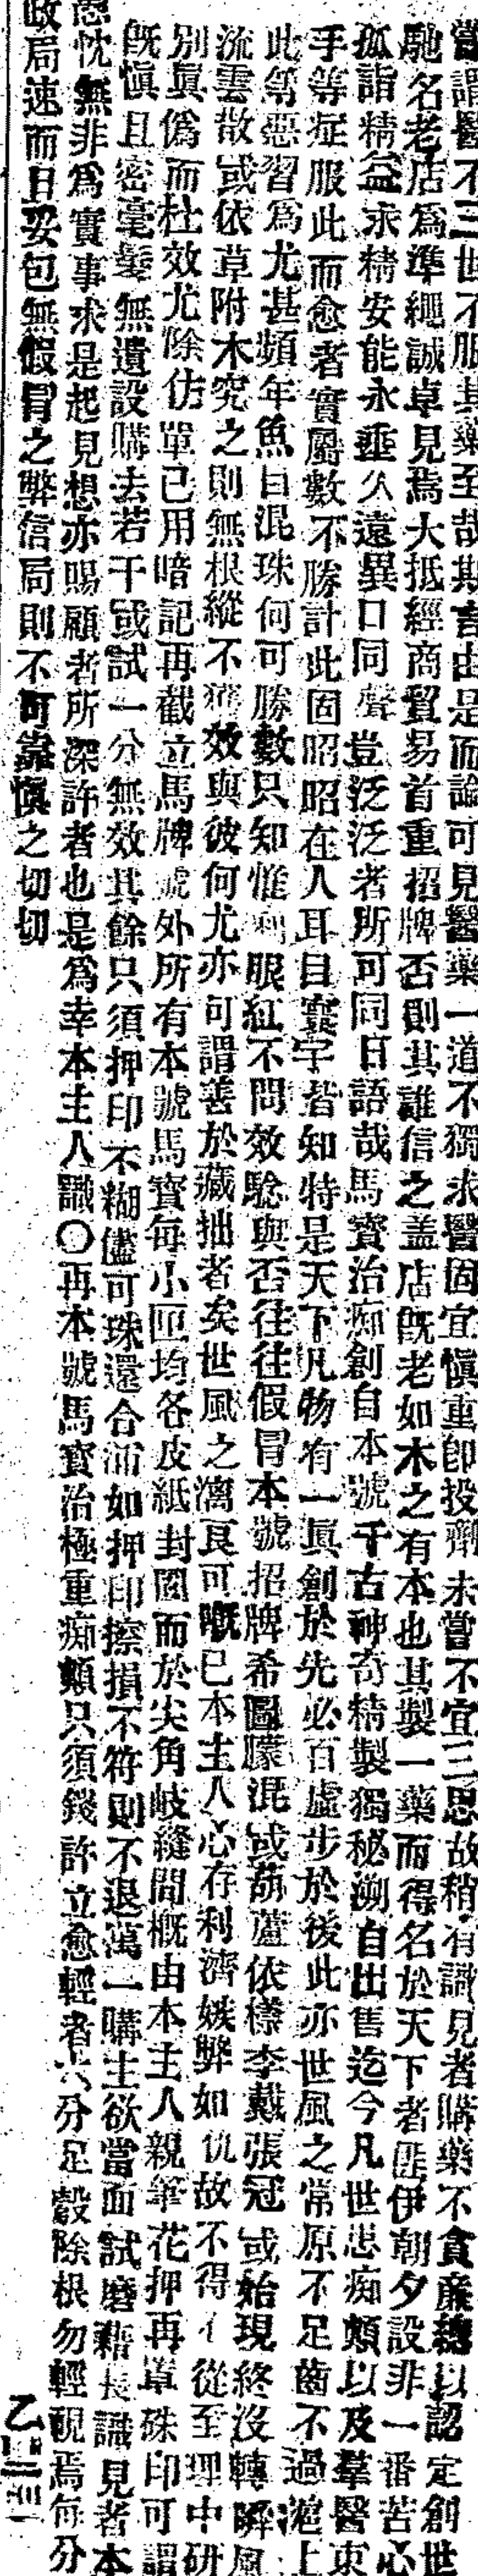 嘗謂醫不三世不服其藥至哉斯言由是而論可見醫藥一道不獨求醫固宜愼重卽投劑未嘗不宜三思故稍有識見者購藥不貪廉總以認定創世
馳名老店爲準繩誠卓見焉大抵經商貿易首重招牌否則其誰信之盖店旣老如木之有本也其製一藥而得名於天下者匪伊朝夕設非一番苦心
孤詣精益求精安能永垂久遠異口同聲豈泛泛者所可同日語哉馬寶治痴創自本號千古神奇精製獨秘溯自出售迄今凡世患痴顚以及羣醫束
手等症服此而愈者實屬數不勝計此固昭昭在人耳目寰宇皆知特是天下凡物有一眞創於先必百虛步於後此亦世風之常原不足齒不過滬上
此等惡習爲尤甚頻年魚目混珠何可勝數只知惟利眼紅不問效驗與否往往假冒本號招牌希圖朦混或葫蘆依樣李戴張冠或始現終沒轉瞬風
流雲散或依草附木究之則無根縱不濟效與彼何尤亦可謂善於藏拙者矣世風之漓良可嘅已本主人心存利濟嫉弊如仇故不得 從至理中研
別眞僞而杜效尤除仿單已用暗記再截立馬牌號外所有本號馬寶每小匣均各皮紙封固而於尖角岐縫間概由本主人親筆花押再章硃印可謂
旣愼且密毫髮無遺設購去若干或試一分無效其餘只須押印不糊儘可珠還合浦如押印擦損不符則不退萬一購主欲當面試磨藉長識見者本
悃忱無非爲實事求是起見想亦賜顧者所深許者也是爲幸本主人識〇再本號馬寶治極重痴顚只須錢許立愈輕者六分足彀除根勿輕視焉每分
政局速而且妥包無假冒之弊信局則不可靠愼之切切
乙